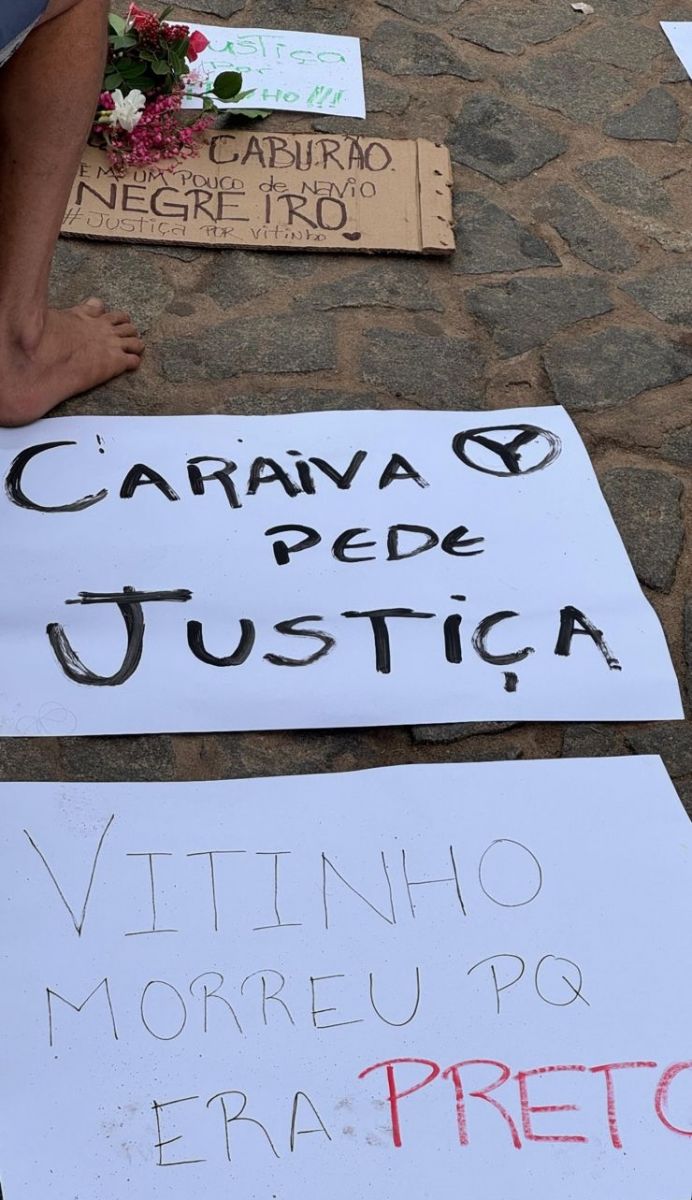 Justiça
Por
CABURÃO.
UM POUCO de NAVIO
NEGREIRO.
#Justiça POR Vitinho
CARAIVA
PEDE
JUSTIÇA
VITINHO
MORREU PQ
ERA PRETO